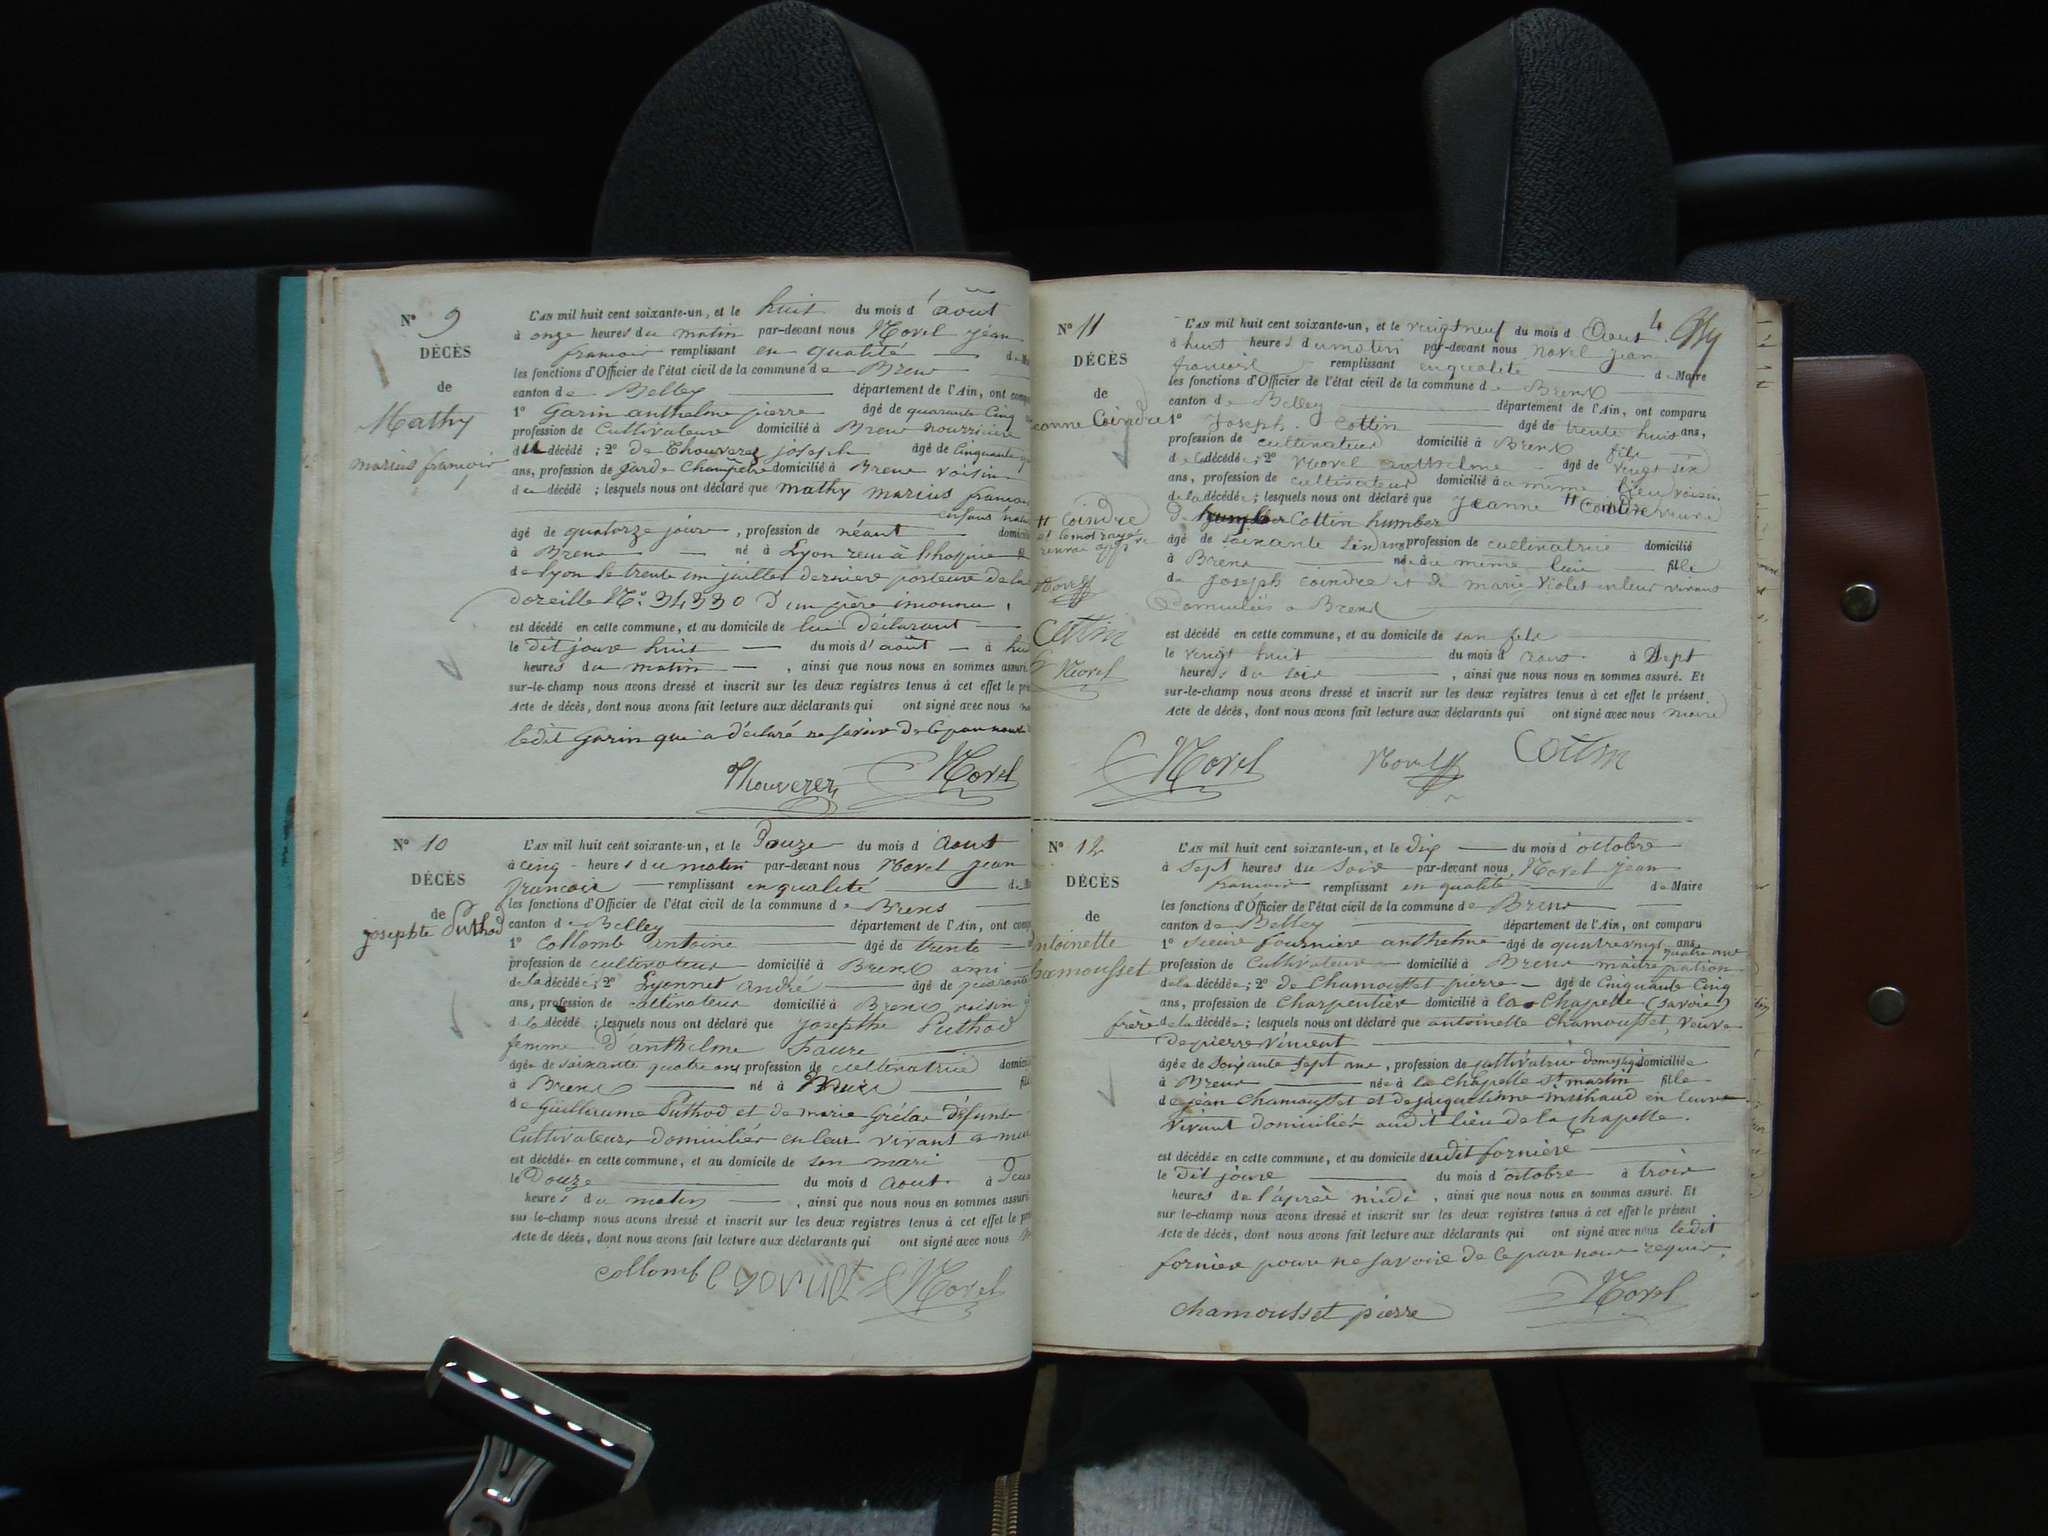 N° 9
DÉCÈS
de
Mathy
marius françois
L'AN mil huit cent soixante-un, et le huit du mois d'août
à onze heures du matin par-devant nous Morel jean
françois remplissant en qualité de
les fonctions d'Officier de l'état civil de la commune de Brens
canton de Belley département de l'Ain, ont
1° Garin anthelme pierre âgé de quarante cinq
profession de Cultivateur domicilié à Brens nourricier
du décédé ; 2° de Thouverez joseph âgé de Cinquante
ans, profession de garde Champêtre domicilié à Brens voisin
du décédé ; lesquels nous ont déclaré que mathy marius françois
âgé de quatorze jours, profession de néant
à Brens né à Lyon
de Lyon le trente un juillet dernier porteur de la
doreille N° 34330 d'un père inconnu,
est décédé en cette commune, et au domicile de lui déclarant
le dit jour huit du mois d'août à
heures du matin , ainsi que nous nous en sommes
sur-le-champ nous avons dressé et inscrit sur les deux registres tenus à cet effet le
Acte de décès, dont nous avons fait lecture aux déclarants qui ont signé avec nous
ledit Garin qui a déclaré ne savoir de ce
Thouverez Morel
N° 10
DÉCÈS
de
josephte Puthod
L'AN mil huit cent soixante-un, et le Douze du mois d Aout
à cinq heures du matin par-devant nous Morel jean
francois remplissant en qualité de
les fonctions d'Officier de l'état civil de la commune de Brens
canton de Belley département de l'Ain, ont
1° Collomb antoine âgé de trente
profession de cultivateur domicilié à Brens ami
de la décédée ; 2° Lyonnet André âgé de quarante
ans, profession de cultivateur domicilié à Brens voisin
de la décédé ; lesquels nous ont déclaré que Josephte Puthod
femme d'anthelme Faure
âgée de soixante quatre ans profession de cultivatrice
à Brens né à
de Guillaume Puthod et de marie Grélar défunts
Cultivateurs domiciliés en leur vivant a
est décédée en cette commune, et au domicile de son mari
le Douze du mois d Aout à
heures du matin , ainsi que nous nous en sommes assuré
sur le-champ nous avons dressé et inscrit sur les deux registres tenus à cet effet le
Acte de décès, dont nous avons fait lecture aux déclarants qui ont signé avec nous
Collomb Morel
4
N° 11
DÉCÈS
de
Coindre
L'AN mil huit cent soixante-un, et le vingt neuf du mois d Aout
à huit heures du matin par-devant nous Morel jean
francois remplissant en qualité de Maire
les fonctions d'Officier de l'état civil de la commune de Brens
canton de Belley département de l'Ain, ont comparu
1° Joseph Cottin âgé de trente huit ans,
profession de cultivateur domicilié à Brens fils
de la décédée ; 2° Morel anthelme âgé de vingt six
ans, profession de cultivateur domicilié à meme lieu voisin
de la décédée ; lesquels nous ont déclaré que Jeanne # veuve
de Cottin humber
âgée de soixante six ans profession de cultivatrice domicilié
à Brens née au même lieu fille
de Joseph Coindre et de marie Violet en leur vivant
Domiciliés a Brens
# Coindre
et le mot rayé
renvoi
Morel
Cottin
Morel
est décédé en cette commune, et au domicile de son fils
le vingt huit du mois d aout à sept
heures du soir , ainsi que nous nous en sommes assuré. Et
sur-le-champ nous avons dressé et inscrit sur les deux registres tenus à cet effet le présent
Acte de décès, dont nous avons fait lecture aux déclarants qui ont signé avec nous maire
Morel Morel Cottin
N° 12
DÉCÈS
de
Antoinette
Chamousset
L'AN mil huit cent soixante-un, et le dix du mois d'octobre
à sept heures du soir par-devant nous Morel jean
francois remplissant en qualité de Maire
les fonctions d'Officier de l'état civil de la commune de Brens
canton de Belley département de l'Ain, ont comparu
1° anthelme âgé de quatrevingt quatre ans
profession de Cultivateur domicilié à Brens maitre patron
de la décédée ; 2° de Chamousset pierre âgé de Cinquante Cinq
ans, profession de Charpentier domicilié à la Chapelle (savoie)
frère de la décédée ; lesquels nous ont déclaré que antoinette Chamousset, veuve
de pierre Vincent
âgée de soixante sept ans, profession de domiciliée
à Brens née à la Chapelle St martin fille
de jean Chamousset et de jaqueline michaud en leur
vivant domiciliés audit lieu de la Chapelle.
est décédée en cette commune, et au domicile dudit fornier
le dit jour du mois d'octobre à trois
heures de l'après midi , ainsi que nous nous en sommes assuré. Et
sur-le-champ nous avons dressé et inscrit sur les deux registres tenus à cet effet le présent
Acte de décès, dont nous avons fait lecture aux déclarants qui ont signé avec nous ledit
fornier pour ne savoir de ce par nous requis.
chamousset pierre Morel